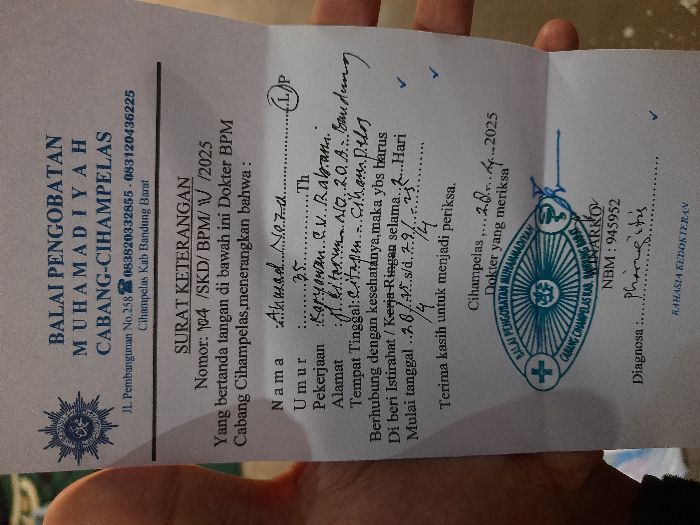 BALAI PENGOBATAN
MUHAMADIYAH
CABANG-CIHAMPELAS
JL Pembangunan No.258 ☎ 083820332855 - 083120436225
Cihampelas Kab Bandung Barat
SURAT KETERANGAN
Nomor: 104 /SKD/ BPM/ /2025
Yang bertanda tangan di bawah ini Dokter BPM
Cabang Cihampelas,menerangkan bahwa :
N a m a : Ahmad Noza L/P
U m u r : 35 Th
Pekerjaan : Karyawan C.V. Rabani
Alamat : Jl Citarum No. 20 A. Bandung
Tempat Tinggal: Citapen - Cihampelas
Berhubung dengan kesehatanya,maka ybs harus
Di beri Istirahat / Kerja Ringan selama 2 Hari
Mulai tanggal 20/4/25 s/d 21/4/25
Terima kasih untuk menjadi periksa.
Cihampelas : 20 - 4 - 2025
Dokter yang meriksa
BALAI PENGOBATAN MUHAMMADIYAH
WINARKO
NBM : 945952
Diagnosa : Pharingitis
RAHASIA KEDOKTERAN